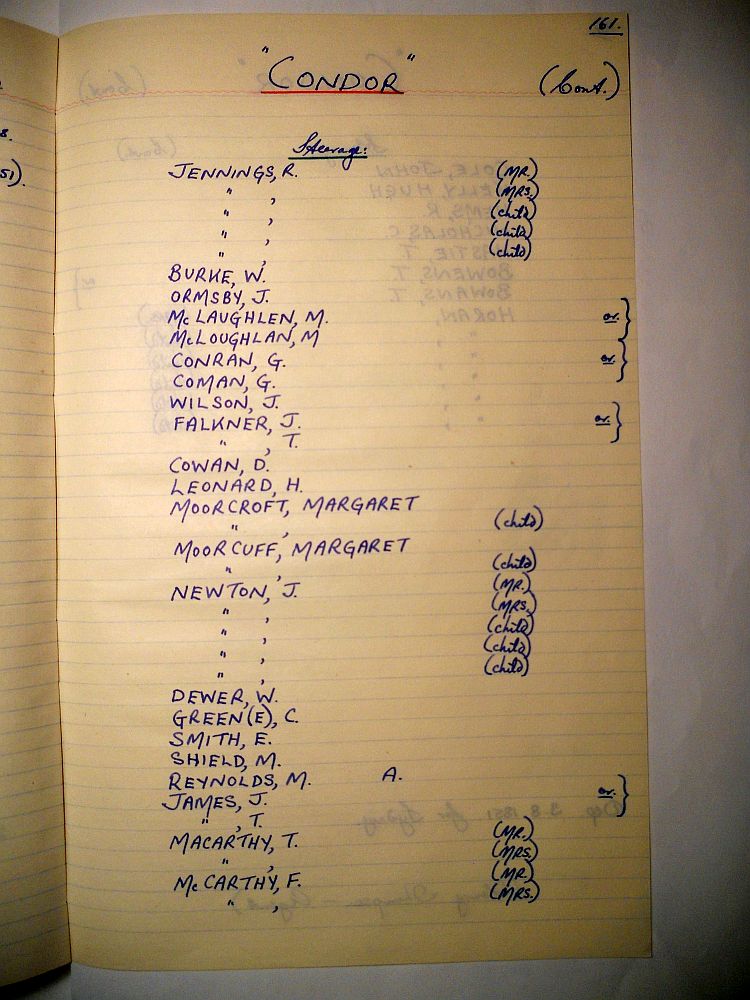 161.
"CONDOR" (Cont.)
Steerage:
JENNINGS, R. (MR.)
" , (MRS.)
" , (child)
" , (child)
" , (child)
BURKE, W.
ORMSBY, J.
McLAUGHLEN, M. or }
McLOUGHLAN, M
CONRAN, G. or }
COMAN, G.
WILSON, J.
FALKNER, J. or }
" , T.
COWAN, D.
LEONARD, H.
MOORCROFT, MARGARET
" , (child)
MOORCUFF, MARGARET
" , (child)
NEWTON, J. (MR.)
" , (MRS.)
" , (child)
" , (child)
" , (child)
DEWER, W.
GREEN(E), C.
SMITH, E.
SHIELD, M.
REYNOLDS, M. A.
JAMES, J. or }
" , T.
MACARTHY, T. (MR.)
" , (MRS.)
McCARTHY, F. (MR.)
" , (MRS.)
8.
51).